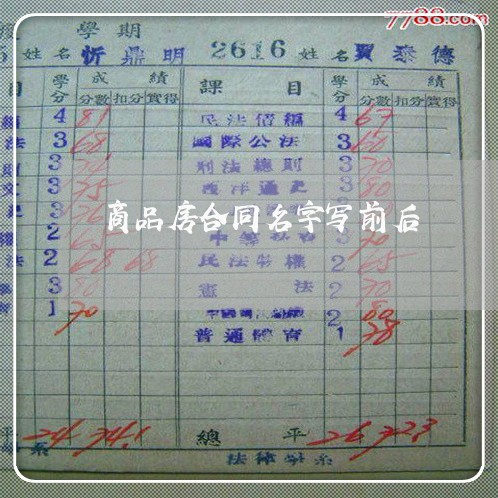 7788.com
學期
姓名 忻鼎明 2616 姓名 賈泰德
目 學分 成績 課目 學分 成績
分數 扣分 實得 分數 扣分 實得
4 81 民法債編 4 67
法 3 68 國際公法 3 60
3 刑法總則 3 70
文 3 75 西洋通史 3 80
3 76 3
商品房合同名字写前后
權 2 65 3 70
法 2 68 68 民法物權 2 65
3 80 憲法 2 70
1 70 2 80
普通體育 1 78
平 24 74.1 總平 26 72.3
系 法律學系